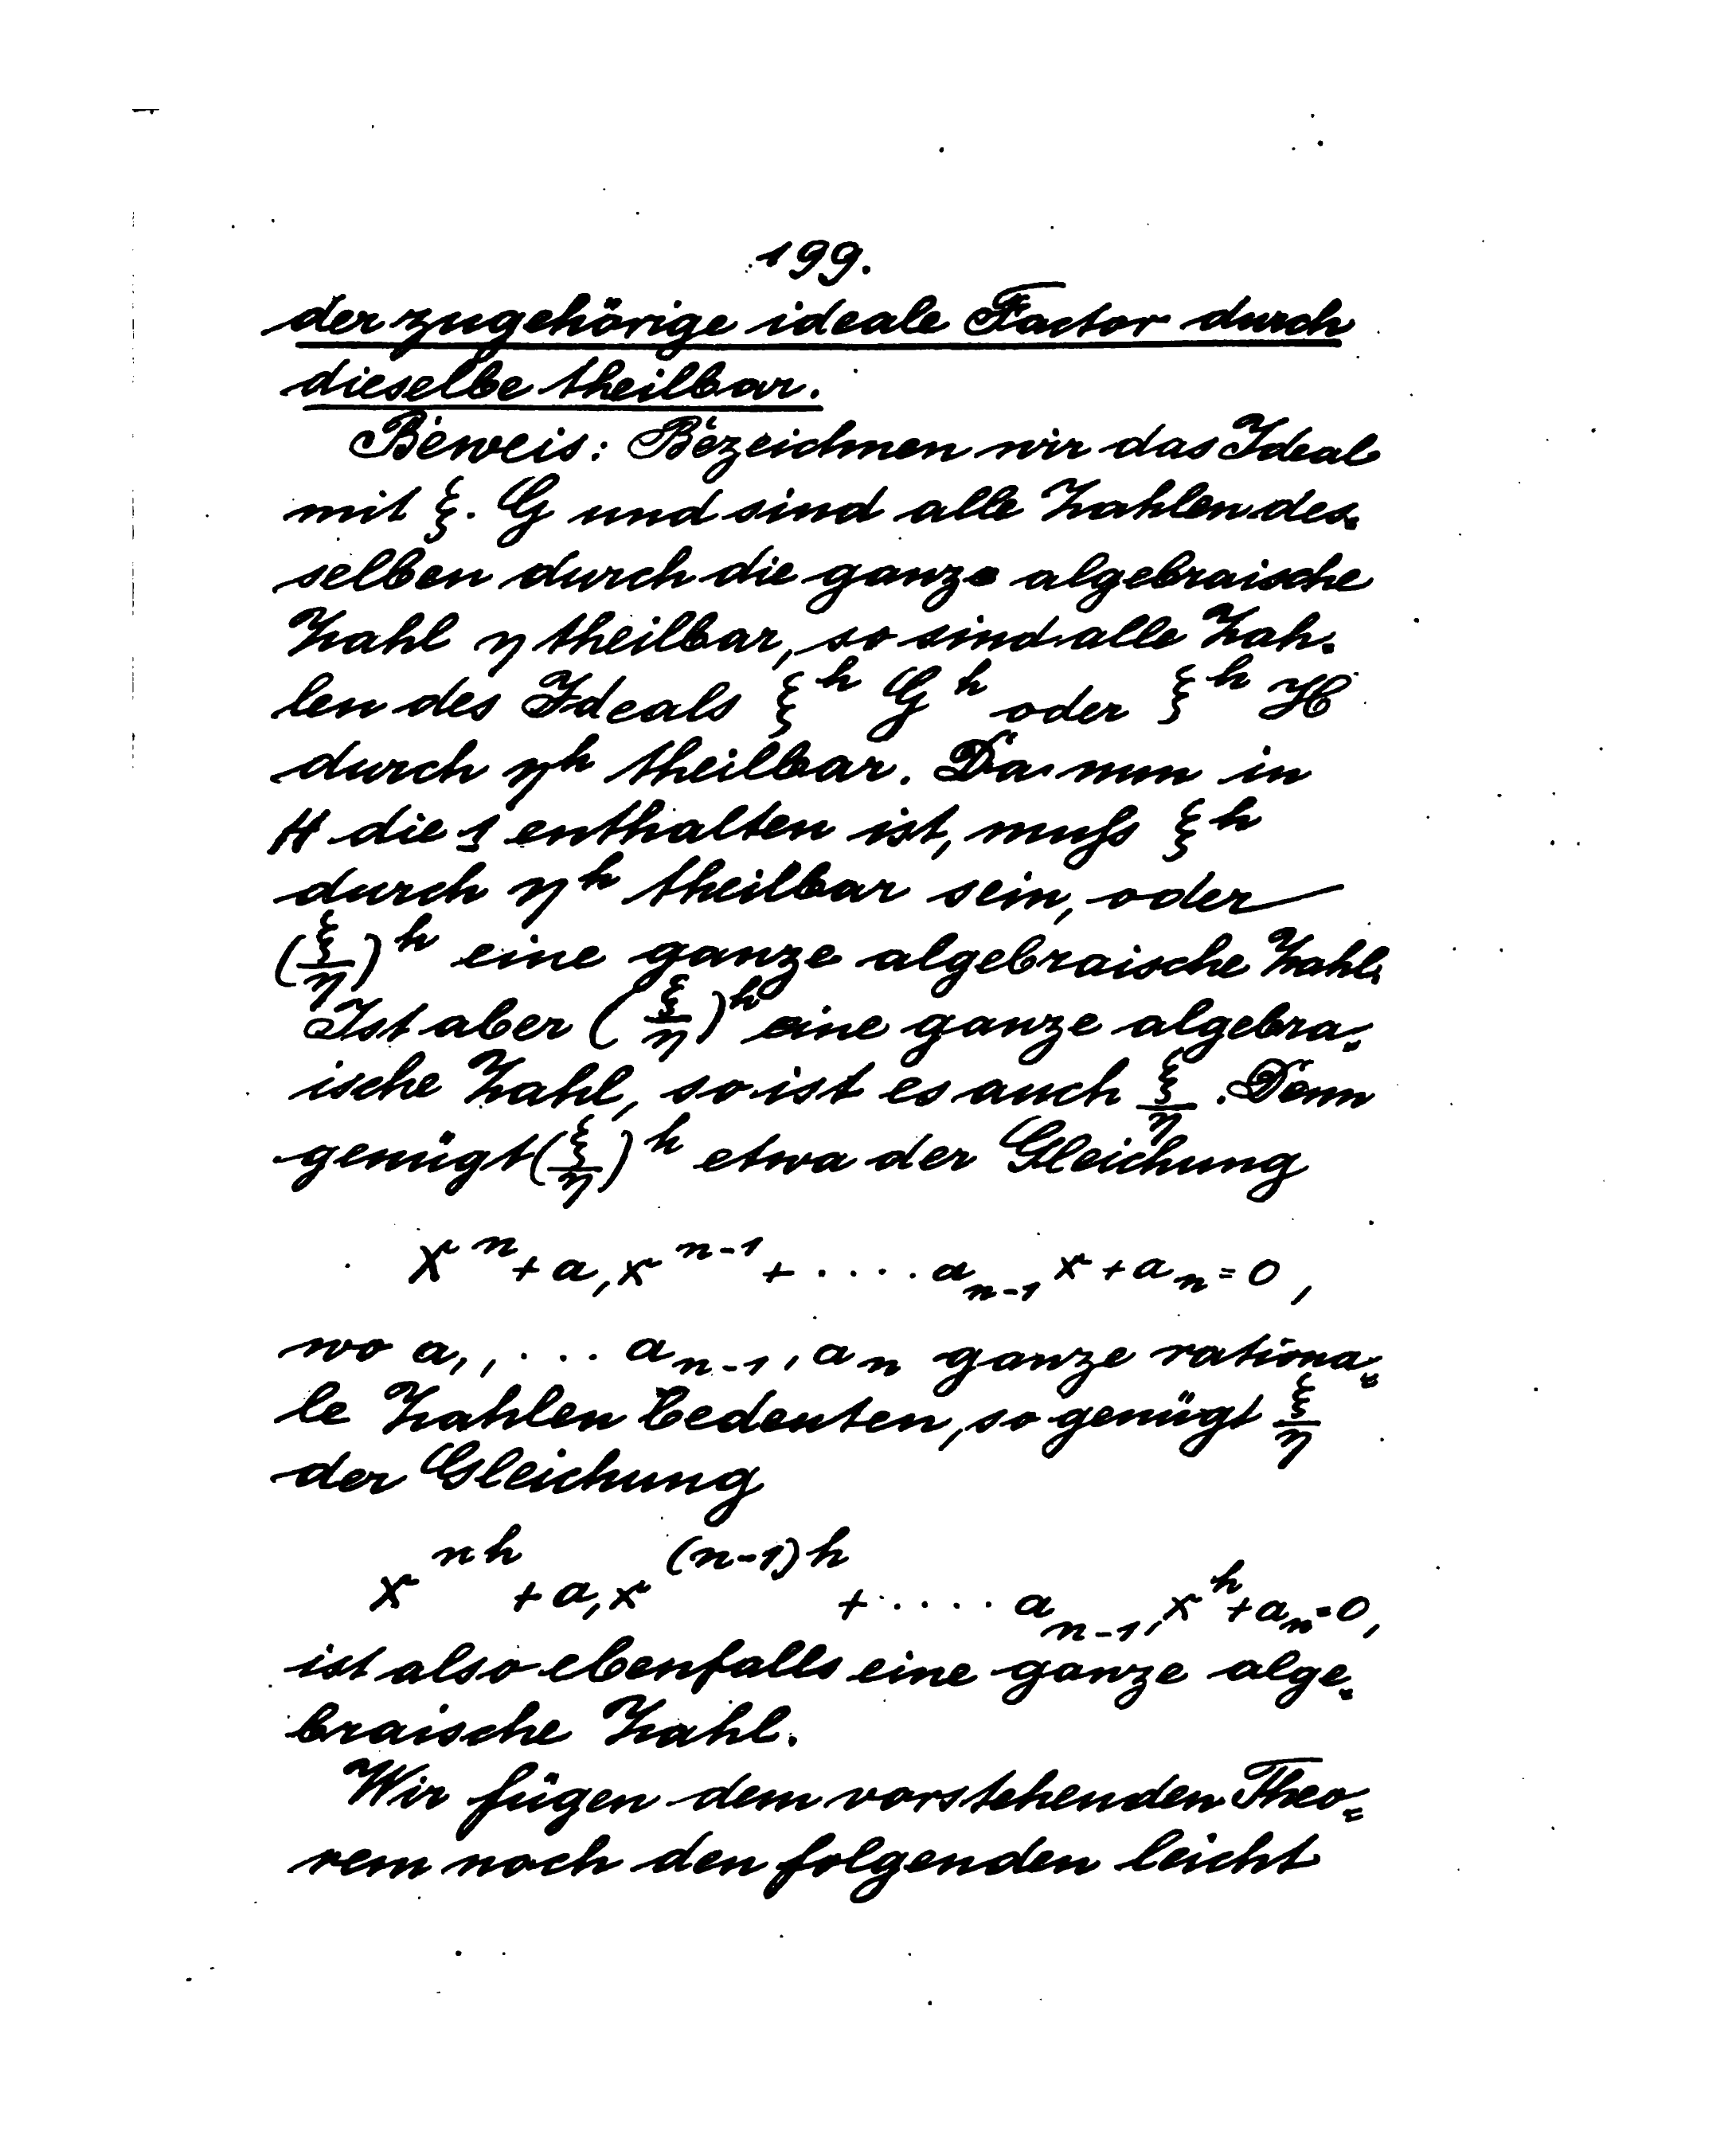 199.
der zugehörige ideale Factor durch
dieselbe theilbar.
Beweis: Bezeichnen wir das Ideal
mit ξ. G und sind alle Zahlen des-
selben durch die ganze algebraische
Zahl η theilbar, so sind alle Zah-
len des Ideals ξ^h G^h oder ξ^h H
durch η^h theilbar. Da nun in
H die 1 enthalten ist, muſs ξ^h
durch η^h theilbar sein, oder
(ξ/η)^h eine ganze algebraische Zahl.
Ist aber (ξ/η)^h eine ganze algebra-
ische Zahl, so ist es auch ξ/η. Denn
genügt (ξ/η)^h etwa der Gleichung
x^n + a_1 x^{n-1} + .... a_{n-1} x + a_n = 0,
wo a_1, ... a_{n-1}, a_n ganze rationa-
le Zahlen bedeuten, so genügt ξ/η
der Gleichung
x^{nh} + a_1 x^{(n-1)h} + .... a_{n-1} x^h + a_n = 0,
ist also ebenfalls eine ganze alge-
braische Zahl.
Wir fügen dem vorstehenden Theo=
rem noch den folgenden leicht